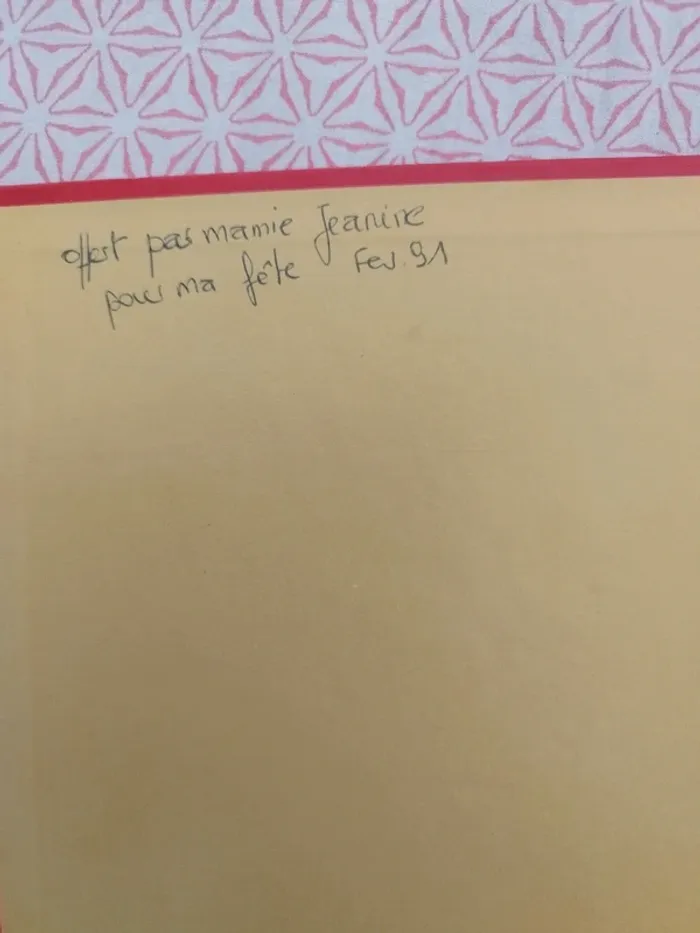 offert par mamie Jeanine
pour ma fête Fev. 91